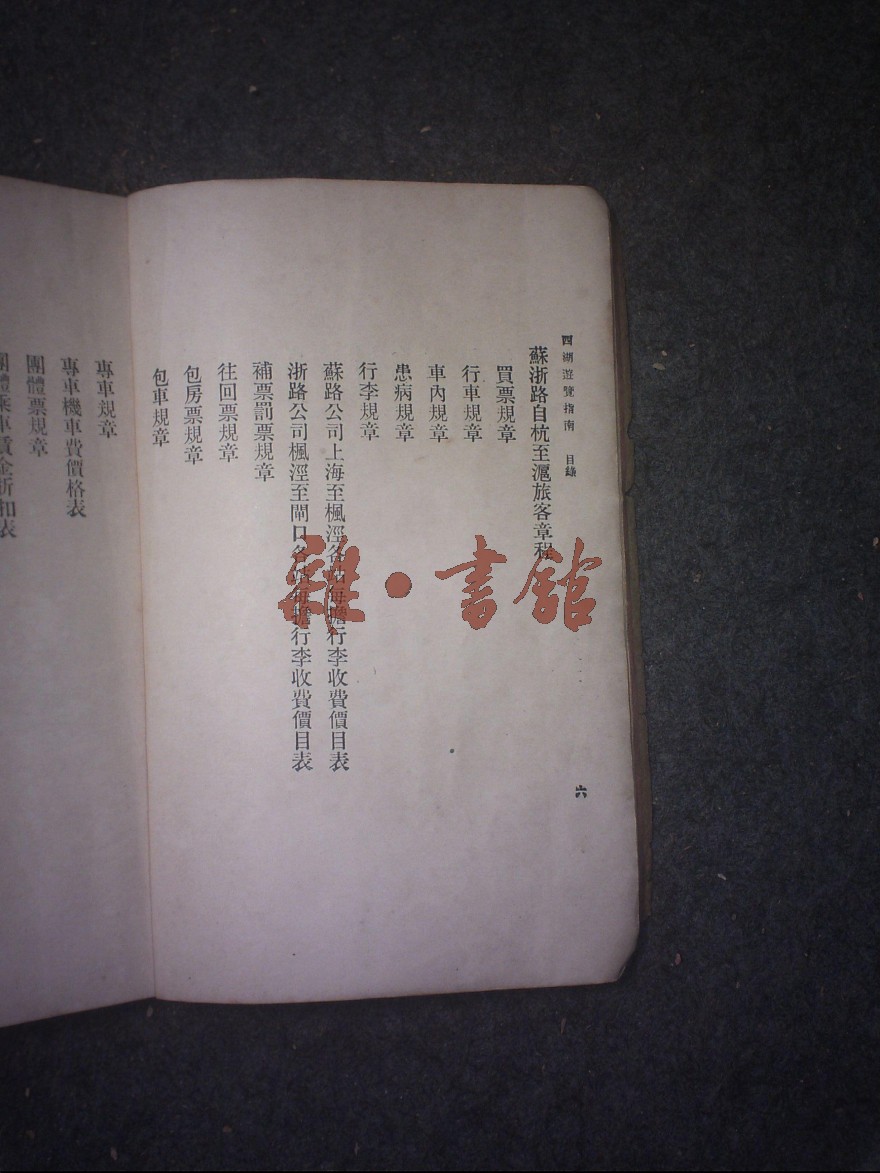 西湖遊覽指南 目錄 六
蘇浙路自杭至滬旅客章程
買票規章
行車規章
車內規章
患病規章
行李規章
蘇路公司上海至楓涇各站每擔行李收費價目表
浙路公司楓涇至閘口各站每擔行李收費價目表
補票罰票規章
往回票規章
包房票規章
包車規章
專車規章
專車機車費價格表
團體票規章
團體乘車賃金折扣表
雜·書館